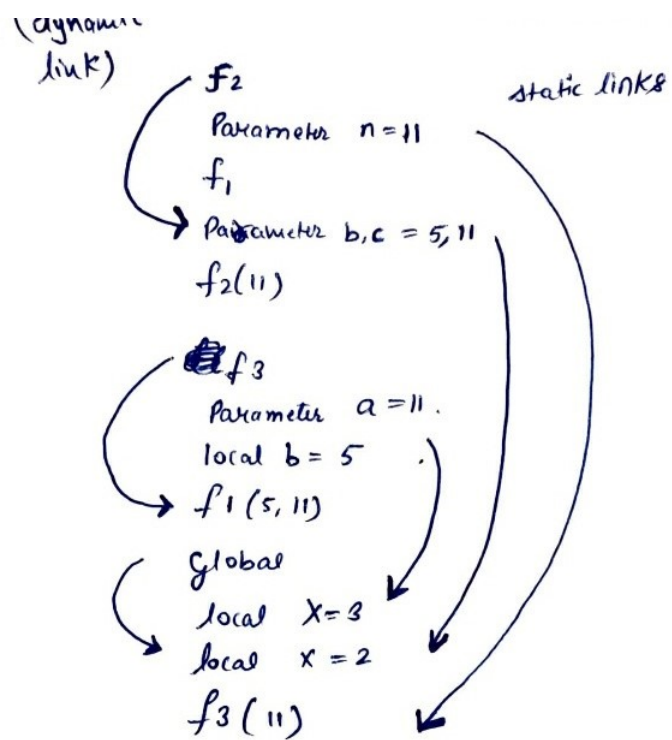 link)
static links
f2
Parameter n=11
f1
Parameter b,c = 5,11
f2(11)
f3
Parameter a=11.
local b= 5
f1(5,11)
Global
local X=3
local x =2
f3(11)